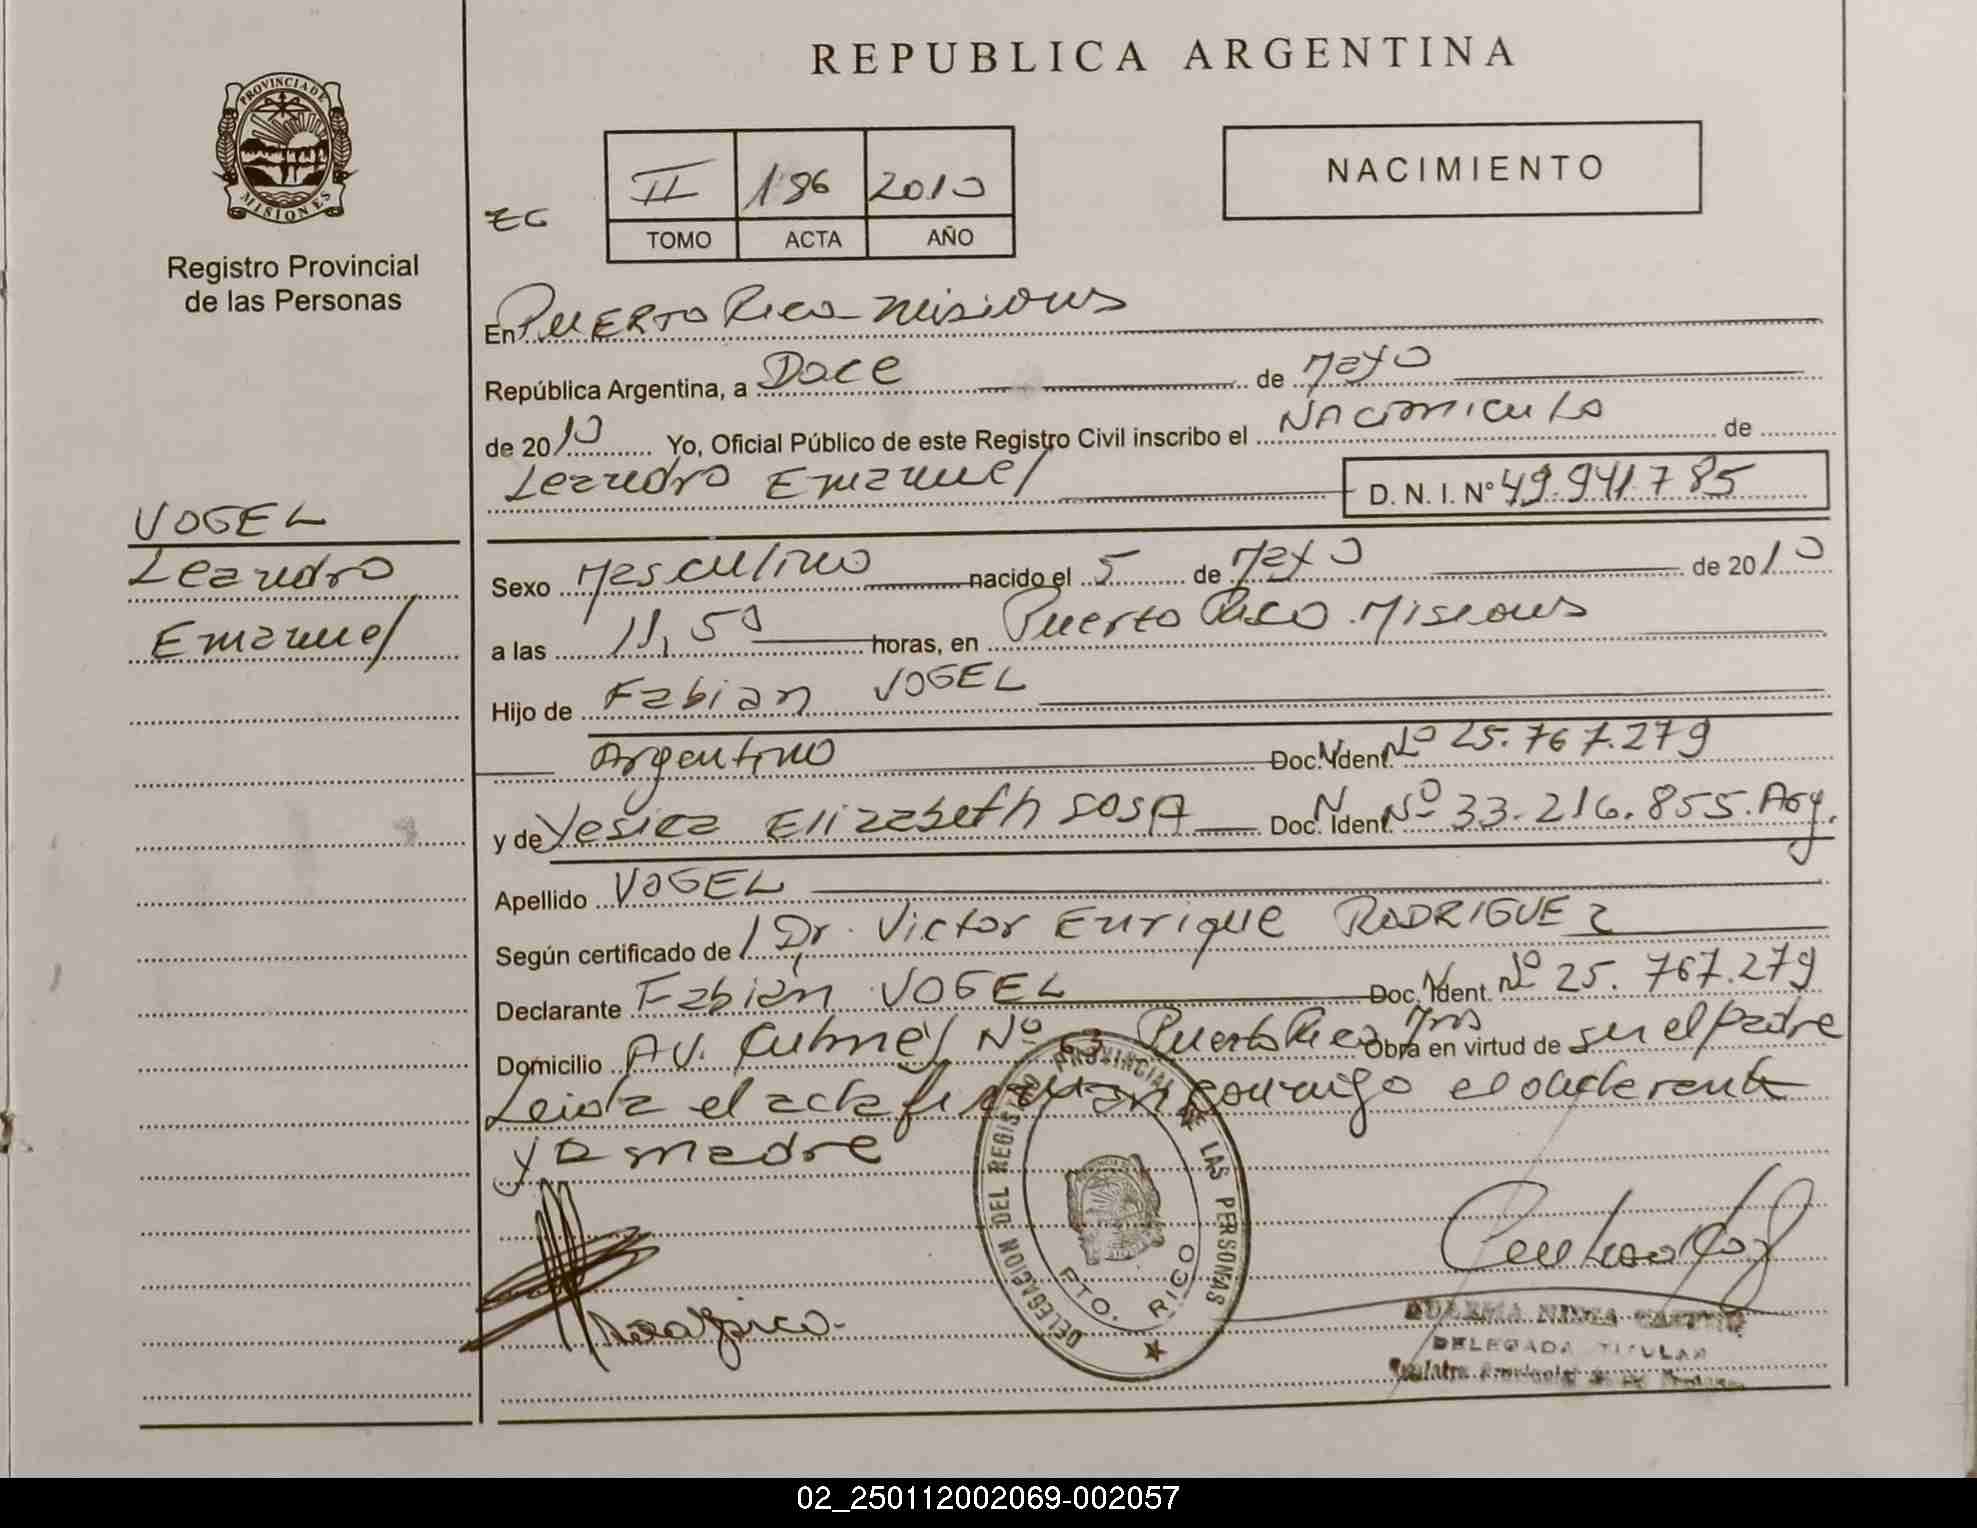 REPUBLICA ARGENTINA
PROVINCIA DE MISIONES
Registro Provincial
de las Personas
NACIMIENTO
EG
II 186 2010
TOMO ACTA AÑO
En PUERTO Rico Misiones
República Argentina, a Doce de Mayo
de 2010 Yo, Oficial Público de este Registro Civil inscribo el NACimiento de
Leandro Emanuel D. N. I. Nº 49.941.785
VOGEL
Leandro
Emanuel
Sexo Masculino nacido el 5 de Mayo de 2010
a las 11,50 horas, en Puerto Rico Misiones
Hijo de Fabian VOGEL
Argentino Doc. N. Ident. Nº 25.767.279
y de Yesica Elizabeth SOSA Doc. N. Ident. Nº 33.216.855. Arg.
Apellido VOGEL
Según certificado de / Dr. Victor Enrique RODRIGUEZ
Declarante Fabian VOGEL Doc. N. Ident. Nº 25.767.279
Domicilio AV. Nº 63 Puerto Rico Mns Obra en virtud de ser el padre
Leida el acta firman conmigo el declarante
y la madre
DELEGACION DEL REGISTRO PROVINCIAL DE LAS PERSONAS
PTO. RICO
DELEGADA TITULAR
02_250112002069-002057